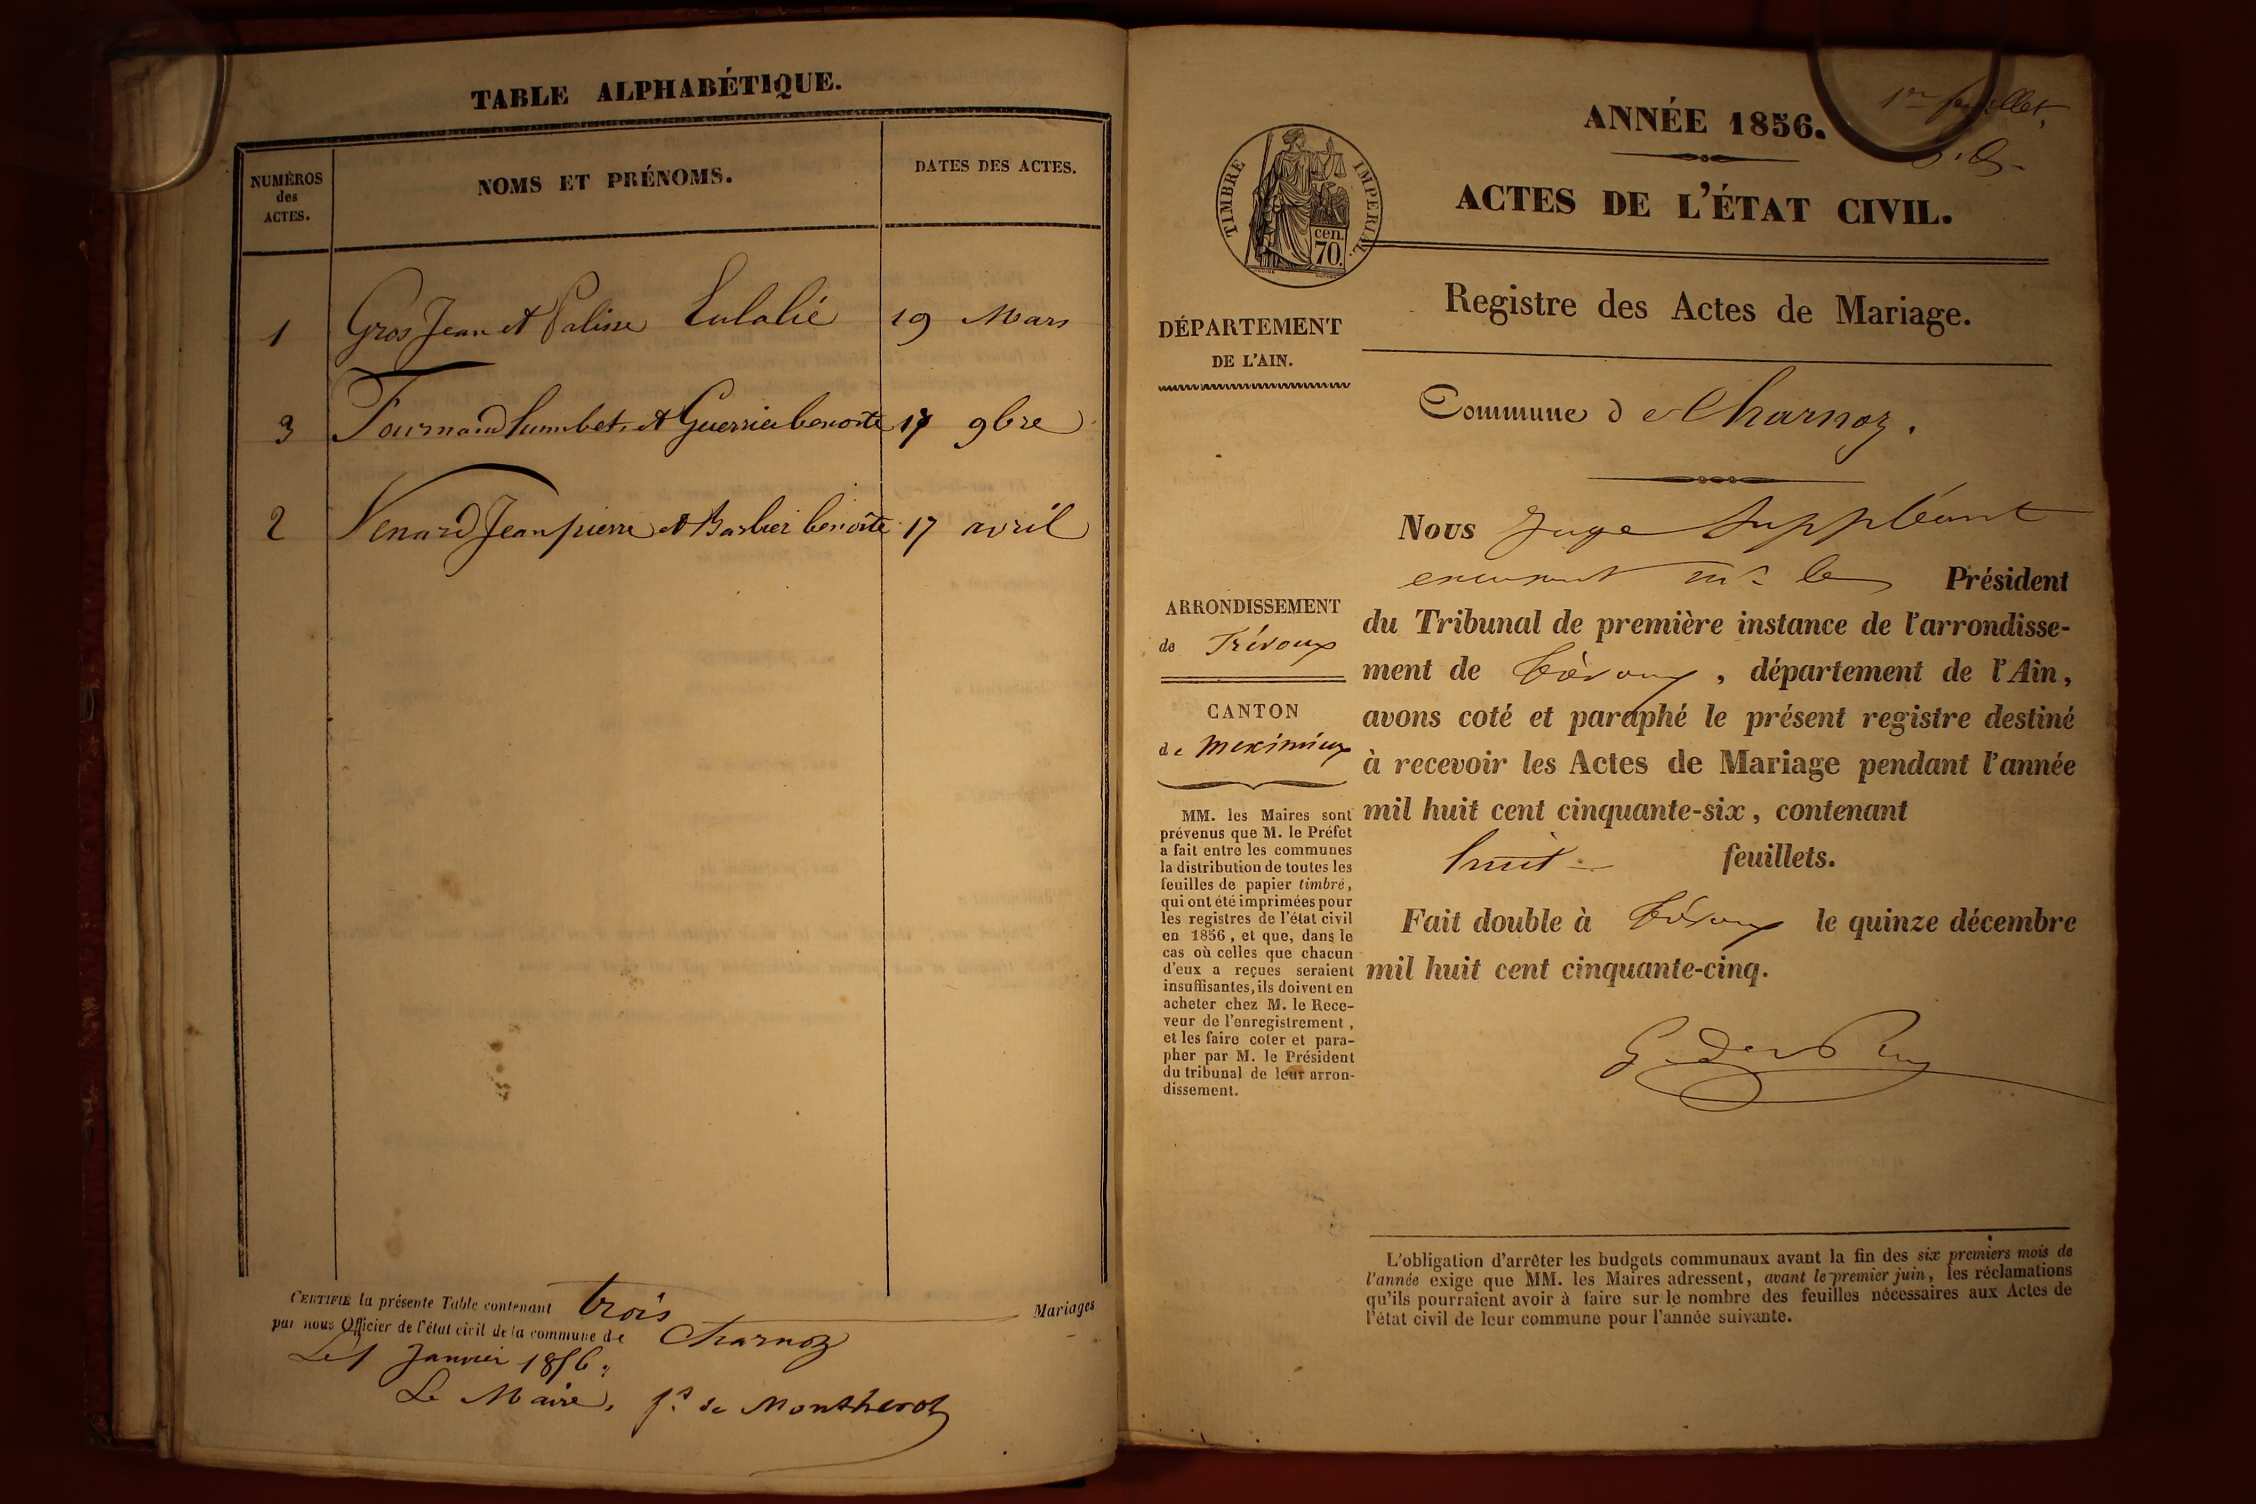 TABLE ALPHABÉTIQUE.
NUMÉROS des ACTES.
NOMS ET PRÉNOMS.
DATES DES ACTES.
1 Gros Jean et Palisse Eulalie 19 Mars
3 Fournand humbert et Guerrier benoite 17 9bre
2 Venard Jean pierre et Barbier benoîte 17 avril
CERTIFIÉ la présente Table contenant trois Mariages
par nous Officier de l'état civil de la commune de Charnoz
Le 1 Janvier 1856.
Le Maire, de Montherot
1er feuillet,
ANNÉE 1856.
ACTES DE L'ÉTAT CIVIL.
TIMBRE IMPERIAL.
cen. 70.
Registre des Actes de Mariage.
DÉPARTEMENT
DE L'AIN.
Commune de Charnoz.
ARRONDISSEMENT
de Trévoux
CANTON
de Meximieux
MM. les Maires sont
prévenus que M. le Préfet
a fait entre les communes
la distribution de toutes les
feuilles de papier timbré,
qui ont été imprimées pour
les registres de l'état civil
en 1856, et que, dans le
cas où celles que chacun
d'eux a reçues seraient
insuffisantes, ils doivent en
acheter chez M. le Rece-
veur de l'enregistrement,
et les faire coter et para-
pher par M. le Président
du tribunal de leur arron-
dissement.
Nous Juge Suppléant
Mr le Président
du Tribunal de première instance de l'arrondisse-
ment de Trévoux, département de l'Ain,
avons coté et paraphé le présent registre destiné
à recevoir les Actes de Mariage pendant l'année
mil huit cent cinquante-six, contenant
huit feuillets.
Fait double à Trévoux le quinze décembre
mil huit cent cinquante-cinq.
L'obligation d'arrêter les budgets communaux avant la fin des six premiers mois de
l'année exige que MM. les Maires adressent, avant le premier juin, les réclamations
qu'ils pourraient avoir à faire sur le nombre des feuilles nécessaires aux Actes de
l'état civil de leur commune pour l'année suivante.